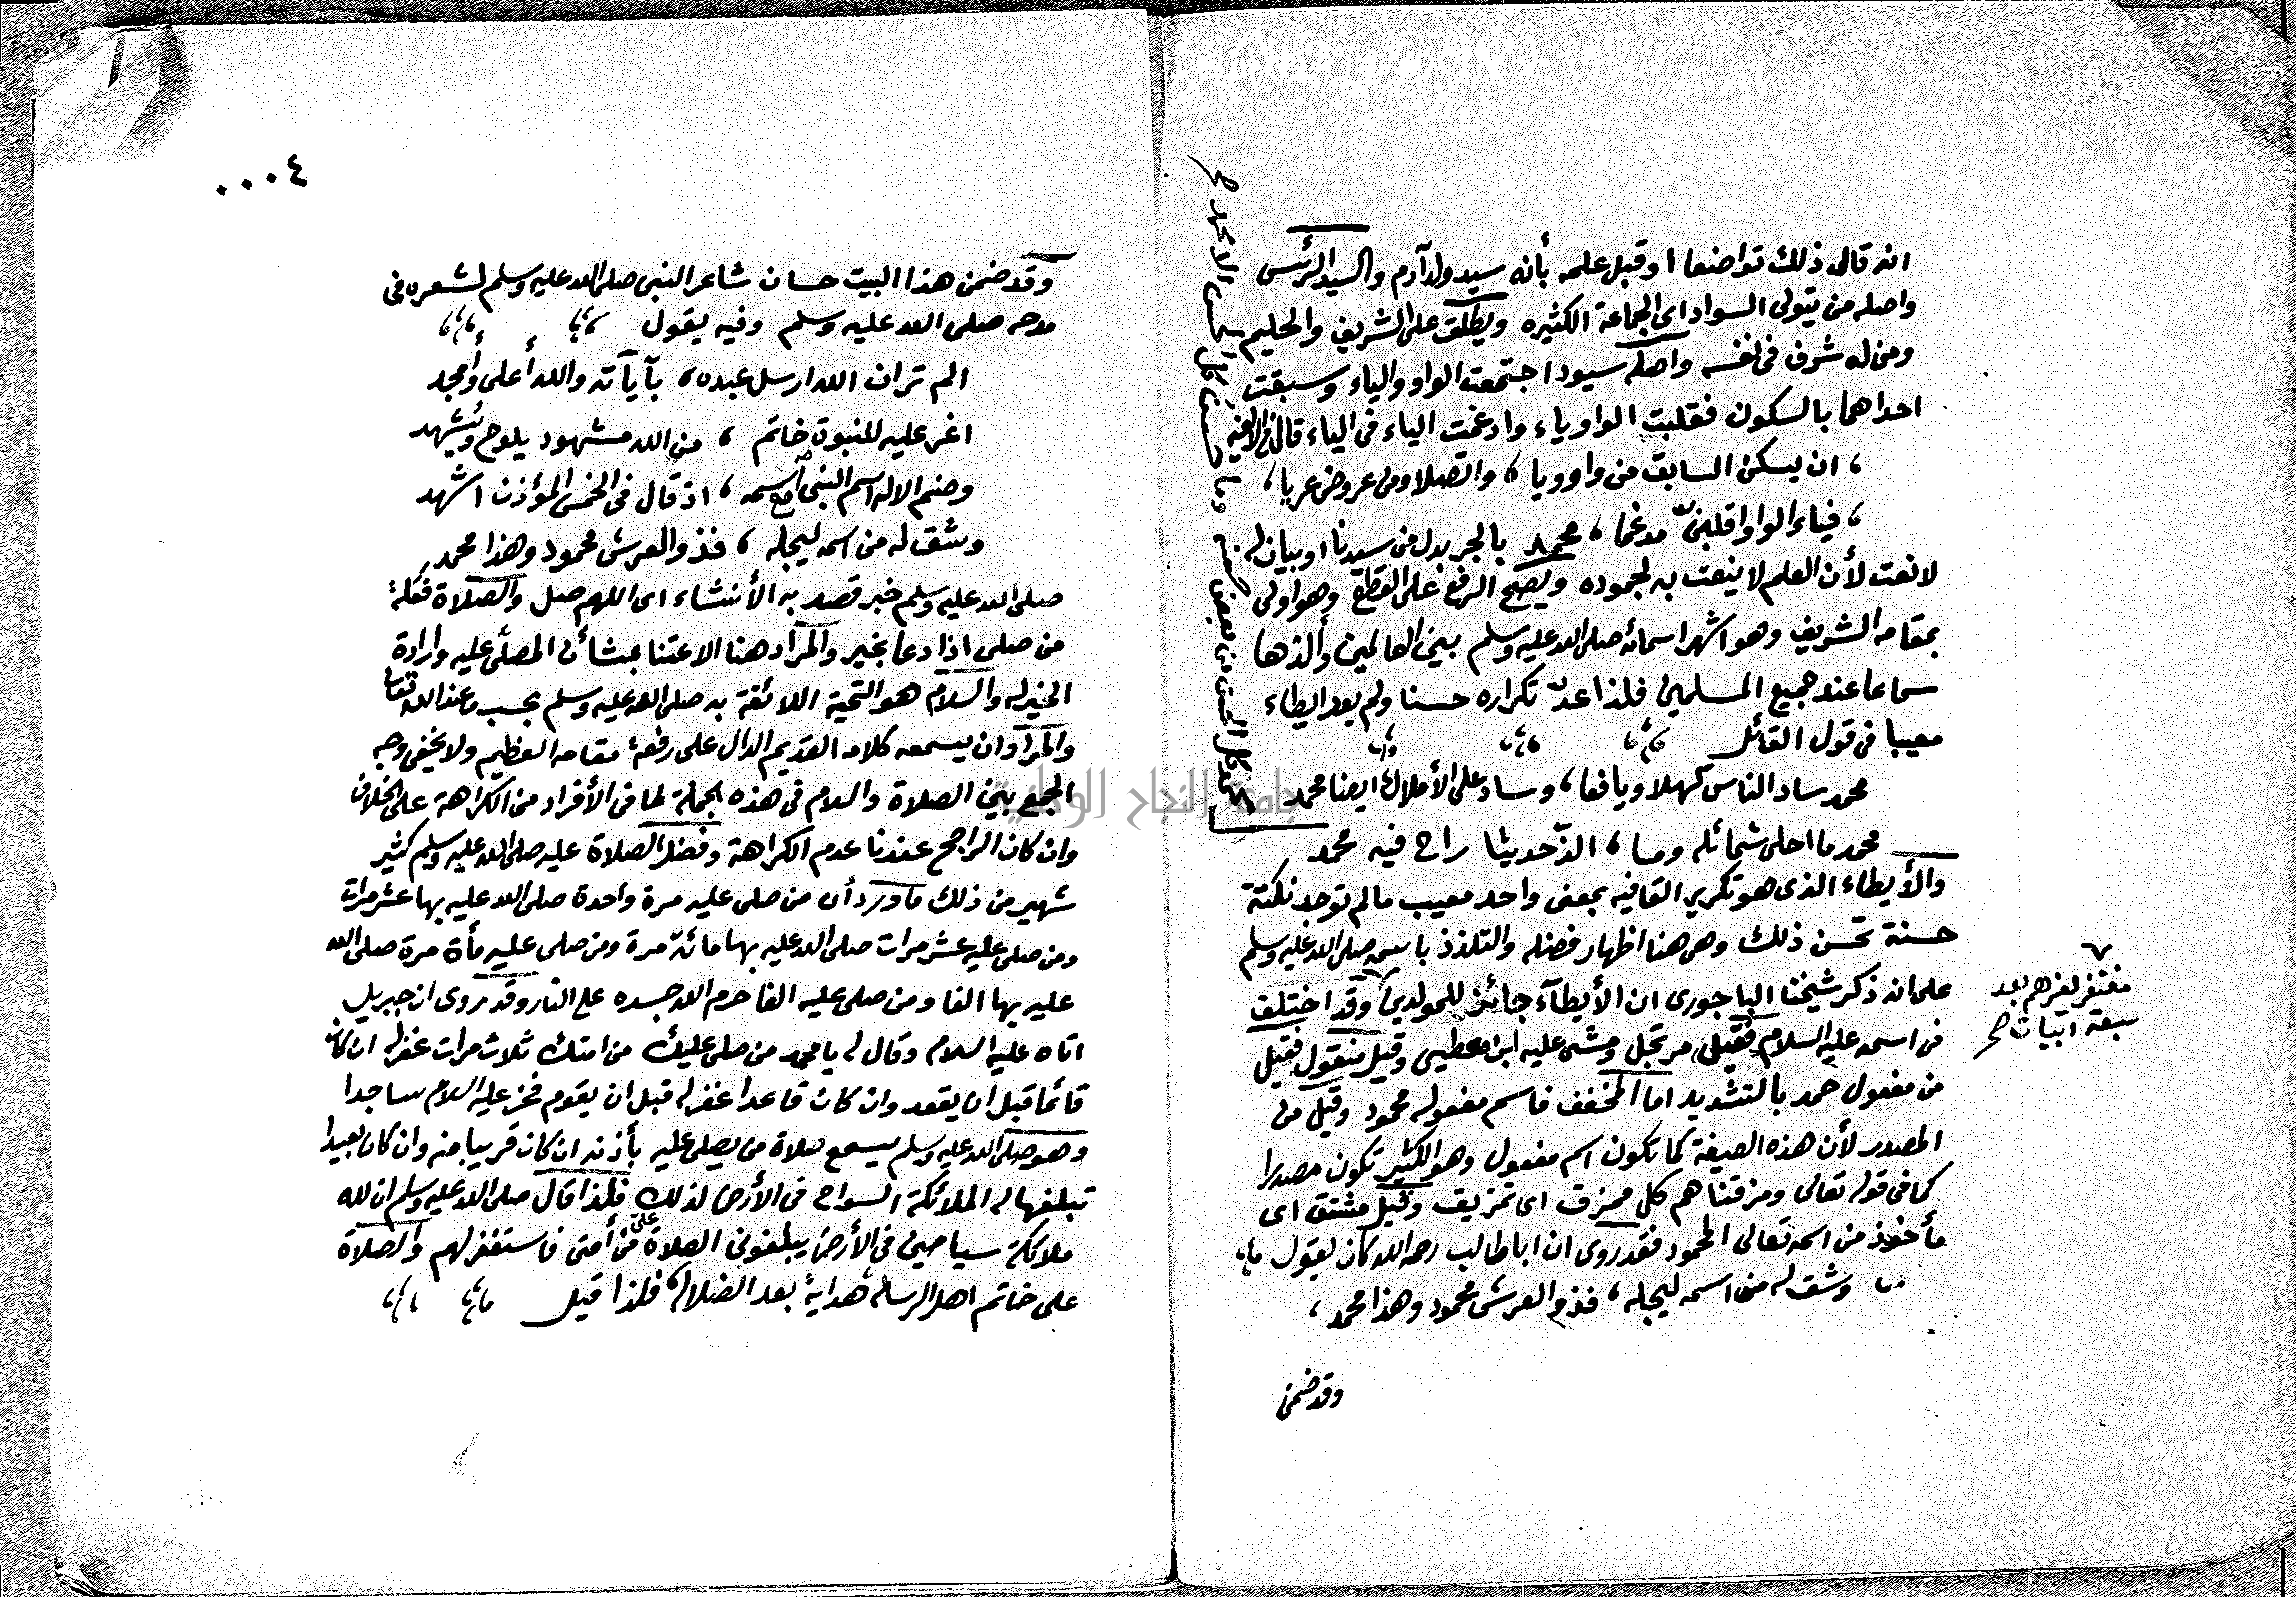 انه قال ذلك تواضعا او قبل علمه بأنه سيد ولد آدم والسيد الرئس
واصله من يتولى السواد اى الجماعة الكثيره ويطلق على الشريف والحليم
ومن له شرف فى نفسه واصله سيود اجتمعت الواو والياء وسبقت
احداهما بالسكون فقلبت الواو ياء وادغمت الياء فى الياء قال فى الالفيه
، ان يسكن السابق من واو ويا ، واتصلا ومن عروض عريا ،
، فياء الواو اقلبنّ مدغما ، محمد بالجر بدل من سيدنا او بيان له
لا نعت لأن العلم لا ينعت به لجموده ويصح الرفع على القطع وهو اولى
بمقامه الشريف وهو اشهر اسمائه صلى الله عليه وسلم بين العالمين وألذها
سماعا عند جميع المسلمين فلذا عدّ تكراره حسنا ولم يعد ايطاء
معيبا فى قول القائل
محمد ساد الناس كهلا ويافعا ، وساد على الأملاك ايضا محمد
محمد كل الحسن من بعض حسنه وما حسن كل الحسن الا محمد صح
محمد ما احلى شمائله وما ، الذّ حديثا راح فيه محمد
والأيطاء الذى هو تكرير القافيه بمعنى واحد معيب ما لم توجد نكتة
حسنة تحسن ذلك وهى هنا اظهار فضله والتلذذ باسمه صلى الله عليه وسلم
على انه ذكر شيخنا الباجورى ان الأيطاء جائز للمولدين وقد اختلف
مغتفر لغيرهم بعد
سبعة ابيات صح
فى اسمه عليه السلام فقيل مرتجل ومشى عليه ابن معطى وقيل منقول فقيل
من مفعول حمد بالتشديد اما المخفف فاسم مفعوله محمود وقيل من
المصدر لأن هذه الصيغة كما تكون اسم مفعول وهو الكثير تكون مصدرا
كما فى قوله تعالى ومزقناهم كل ممزق اى تمزيق وقيل مشتق اى
مأخوذ من اسمه تعالى المحمود فقد روى ان ابا طالب رحمه الله كان يقول
وشق له من اسمه ليجله ، فذو العرش محمود وهذا محمد ،
وقد ضمن
٠٠٠٤
وقد ضمن هذا البيت حسان شاعر النبى صلى الله عليه وسلم لشعره فى
مدحه صلى الله عليه وسلم وفيه يقول
الم تر ان الله ارسل عبده ، بآياته والله أعلى وأمجد
اغر عليه للنبوة خاتم ، من الله مشهود يلوح ويشهد
وضم الاله اسم النبى مع اسمه ، اذ قال فى الخمس المؤذن اشهد
وشق له من اسمه ليجله ، فذو العرش محمود وهذا محمد
صلى الله عليه وسلم خبر قصد به الأنشاء اى اللهم صل والصلاة فعلة
من صلى اذا دعا بخير والمراد هنا الاعتنا بشأن المصلّى عليه وارادة
الخير له والسلام هو التحية اللائقة به صلى الله عليه وسلم بحسب ما عند الله تعالى
والمراد ان يسمعه كلامه القديم الدال على رفعة مقامه العظيم ولا يخفى وجه
الجمع بين الصلاة والسلام فى هذه الجملة لما فى الأفراد من الكراهة على الخلاف
وان كان الراجح عندنا عدم الكراهة وفضل الصلاة عليه صلى الله عليه وسلم كثير
شهير من ذلك ما ورد أن من صلى عليه مرة واحدة صلى الله عليه بها عشر مرات
ومن صلى عليه عشر مرات صلى الله عليه بها مائة مرة ومن صلى عليه مأة مرة صلى الله
عليه بها الفا ومن صلى عليه الفا حرم الله جسده على النار وقد روى ان جبريل
اتاه عليه السلام وقال له يا محمد من صلى عليك من امتك ثلاث مرات غفر له ان كان
قائما قبل ان يقعد وان كان قاعدا غفر له قبل ان يقوم فخر عليه السلام ساجدا
وهو صلى الله عليه وسلم يسمع صلاة من يصلى عليه بأذنه ان كان قريبا منه وان كان بعيدا
تبلغها له الملائكة السواح فى الأرض لذلك فلذا قال صلى الله عليه وسلم ان لله
ملائكة سياحين فى الأرض يبلغونى الصلاة علىّ من أمتى فاستغفر لهم والصلاة
على خاتم اهل الرسالة هداية بعد الضلالة فلذا قيل
جامعة النجاح الوطنية